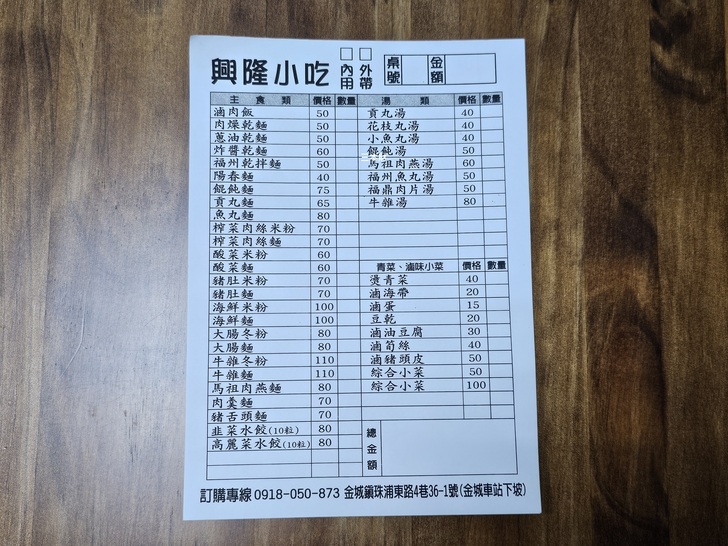 興隆小吃 □內用 □外帶 桌號 金額
主食類 價格 數量
滷肉飯 50
肉燥乾麵 50
蔥油乾麵 50
炸醬乾麵 60
福州乾拌麵 50
陽春麵 40
餛飩麵 75
貢丸麵 65
魚丸麵 80
榨菜肉絲米粉 70
榨菜肉絲麵 70
酸菜米粉 60
酸菜麵 60
豬肚米粉 70
豬肚麵 70
海鮮米粉 100
海鮮麵 100
大腸冬粉 80
大腸麵 80
牛雜冬粉 110
牛雜麵 110
馬祖肉燕麵 80
肉羹麵 70
豬舌頭麵 70
韭菜水餃(10粒) 80
高麗菜水餃(10粒) 80
湯類 價格 數量
貢丸湯 40
花枝丸湯 40
小魚丸湯 40
餛飩湯 50
馬祖肉燕湯 60
福州魚丸湯 50
福鼎肉片湯 50
牛雜湯 80
青菜、滷味小菜 價格 數量
燙青菜 40
滷海帶 20
滷蛋 15
豆乾 20
滷油豆腐 30
滷筍絲 40
滷豬頭皮 50
綜合小菜 50
綜合小菜 100
總金額
訂購專線 0918-050-873 金城鎮珠浦東路4巷36-1號(金城車站下坡)